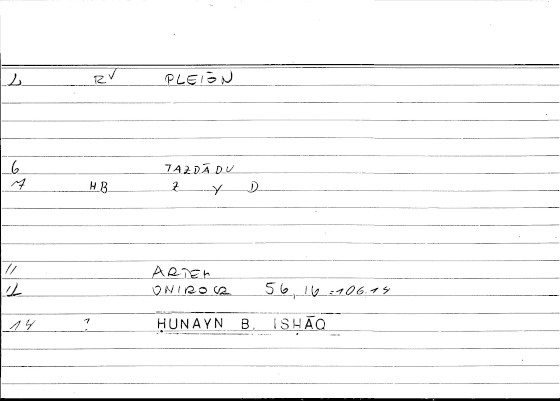 2 RV PLEIŌN
6 TAZDĀDU
7 HB Z Y D
11 ARTEM
12 ONIROCR 56, 16 = 106.14
14 ? ḤUNAYN B. ISḤĀQ